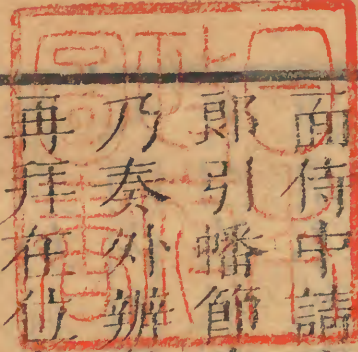 面侍中請
郎引幡節
乃奏外辦
再拜在位